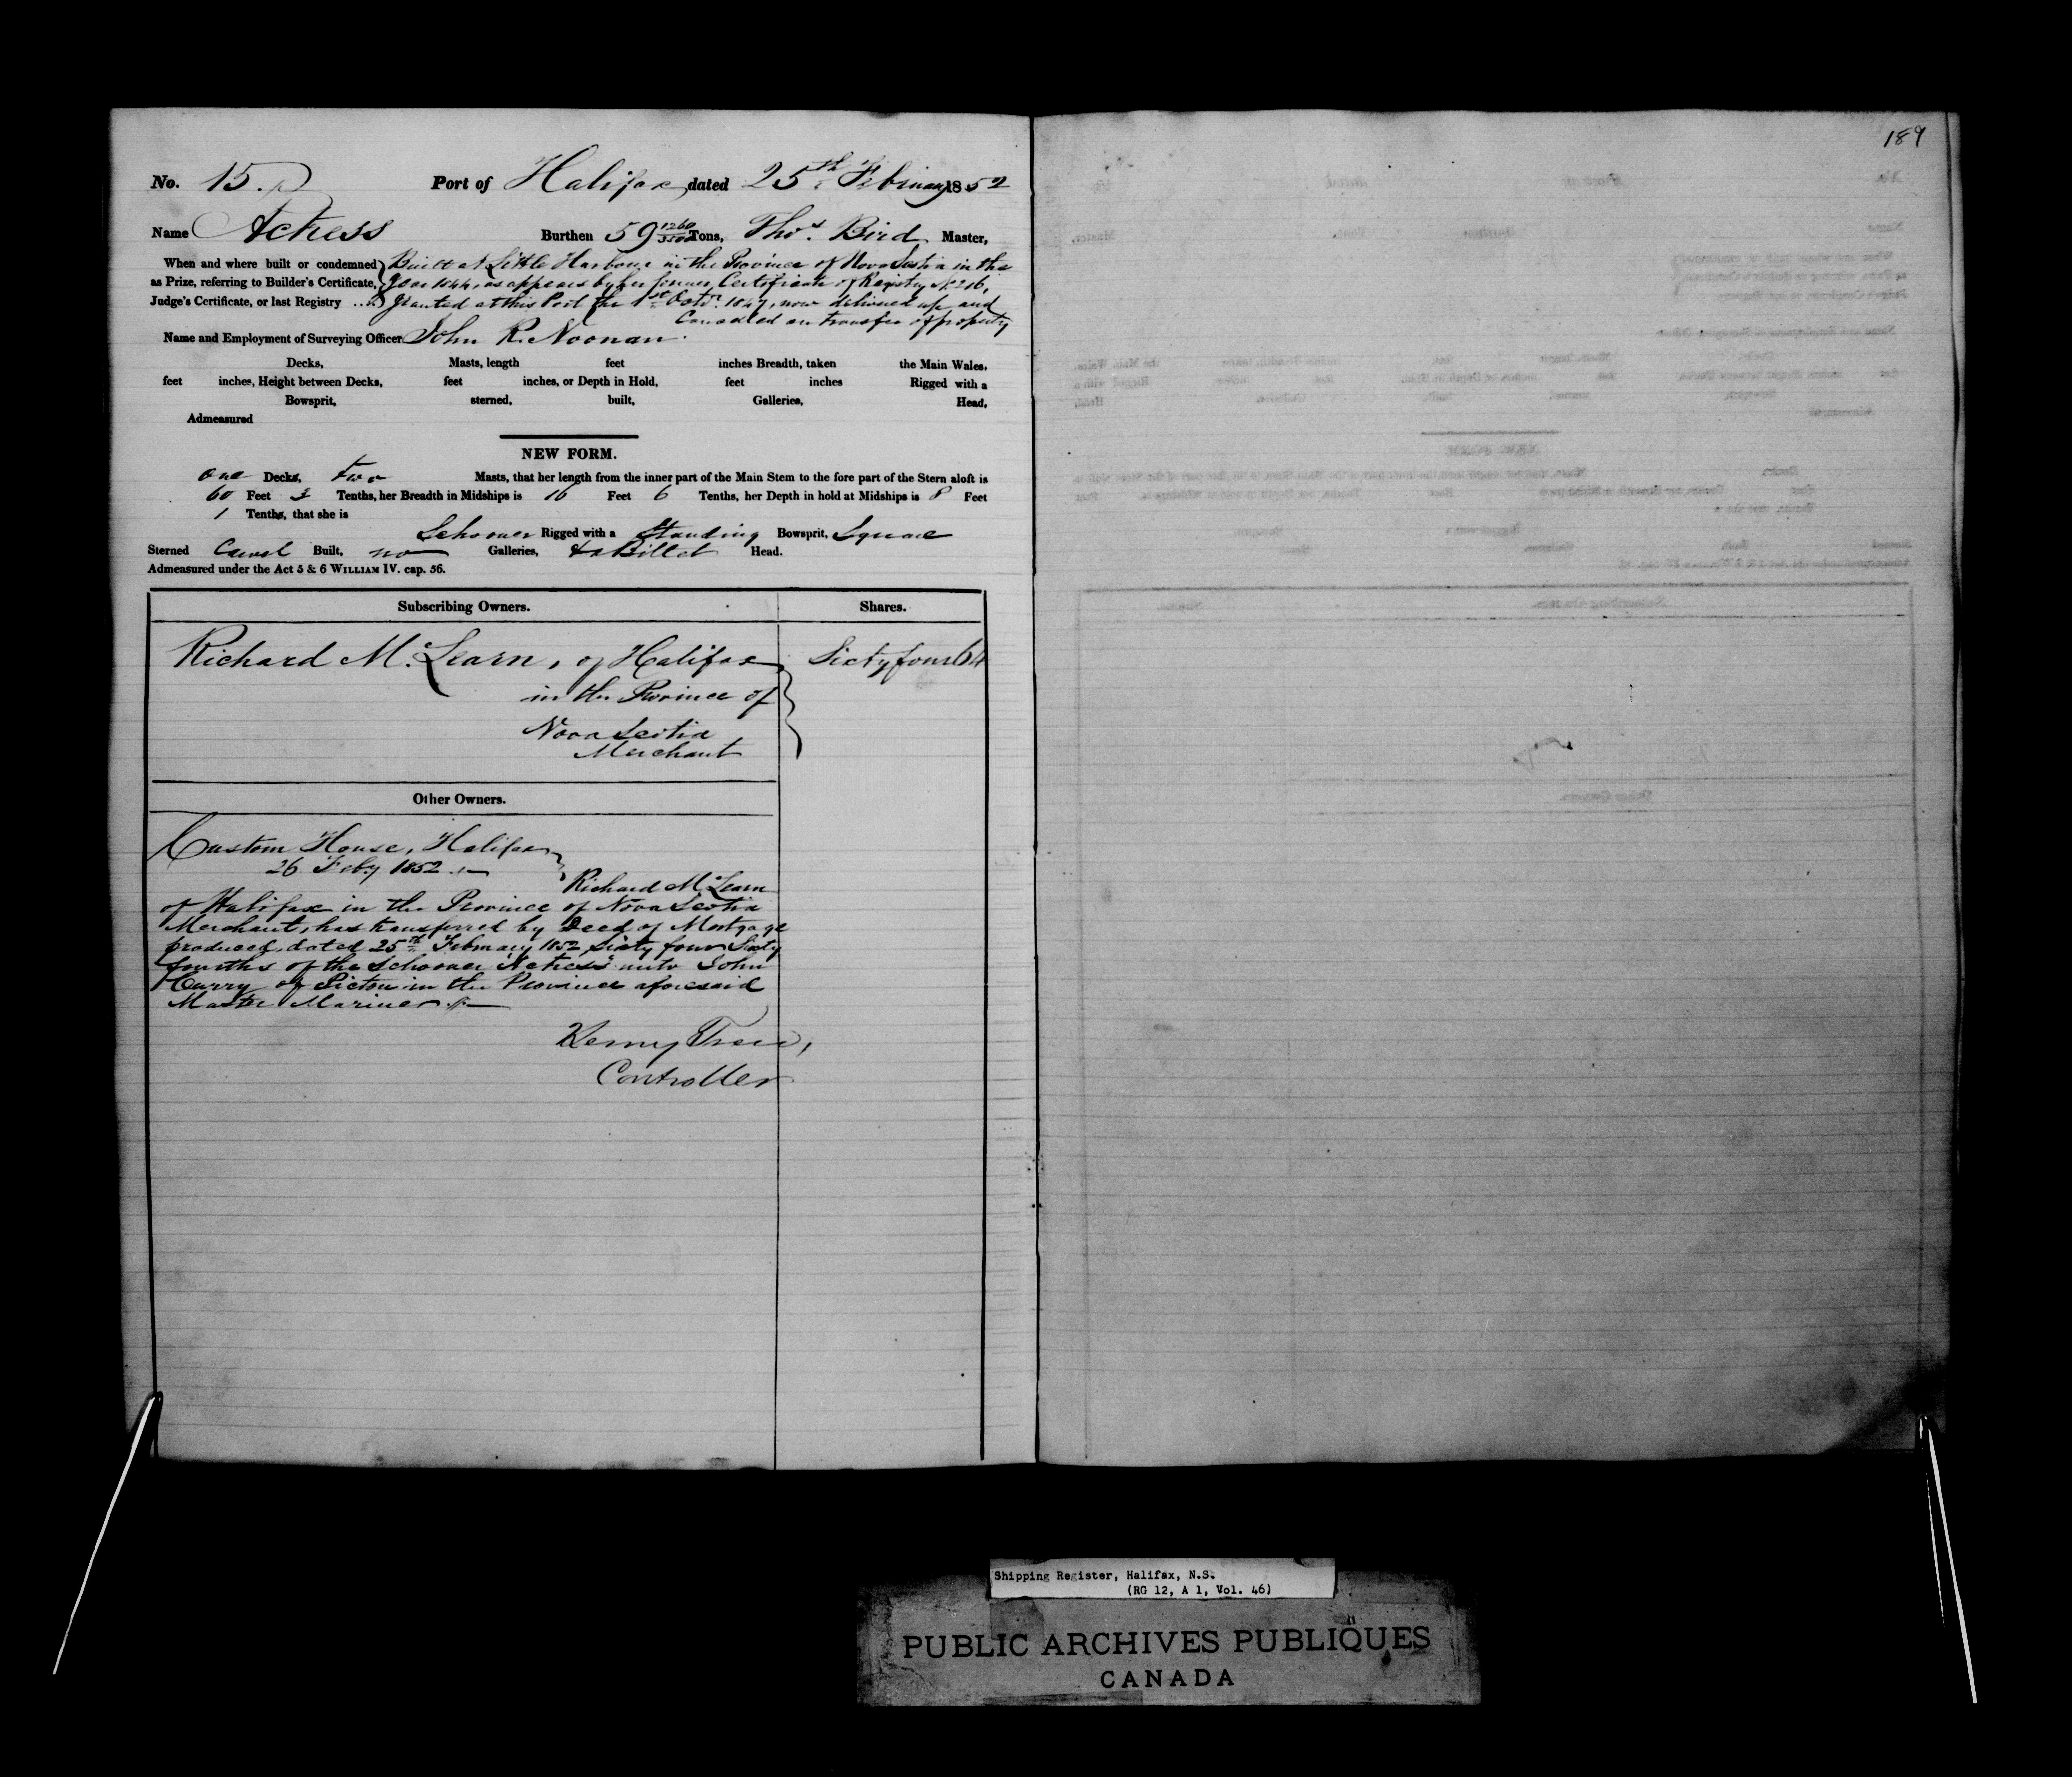 189
No. 15. Port of Halifax, dated 25th February 1852
Name Actress Burthen 59 1260/3500 Tons, Thos. Bird Master,
When and where built or condemned as Prize, referring to Builder's Certificate, Judge's Certificate, or last Registry
Built at Little Harbour in the Province of Nova Scotia in the
Year 1844, as appears by her former Certificate of Registry No 216,
Granted at this Port the 1st Octr. 1847, now delivered up and
Cancelled on transfer of property
Name and Employment of Surveying Officer John R. Noonan.
Decks, Masts, length feet inches Breadth, taken the Main Wales,
feet inches, Height between Decks, feet inches, or Depth in Hold, feet inches Rigged with a
Bowsprit, sterned, built, Galleries, Head,
Admeasured
NEW FORM.
one Decks, two Masts, that her length from the inner part of the Main Stem to the fore part of the Stern aloft is
60 Feet 3 Tenths, her Breadth in Midships is 16 Feet 6 Tenths, her Depth in hold at Midships is 8 Feet
1 Tenths, that she is
Schooner Rigged with a Standing Bowsprit, Square
Sterned Carvel Built, no Galleries, & a Billet Head.
Admeasured under the Act 5 & 6 WILLIAM IV. cap. 56.
Subscribing Owners. Shares.
Richard McLearn, of Halifax Sixty four 64
in the Province of
Nova Scotia
Merchant
Other Owners.
Custom House, Halifax
26 Feby 1852
Richard McLearn
of Halifax in the Province of Nova Scotia
Merchant, has transferred by Deed of Mortgage
produced, dated 25th February 1852 Sixty four Sixty
fourths of the Schooner "Actress" unto John
Curry of Pictou in the Province aforesaid
Master Mariner
Controller
Shipping Register, Halifax, N.S.
(RG 12, A 1, Vol. 46)
PUBLIC ARCHIVES PUBLIQUES
CANADA